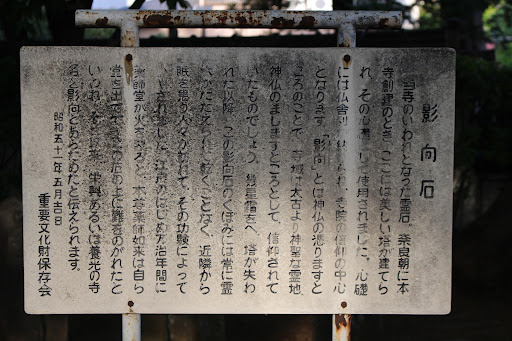 影向石
当寺のいわれとなった霊石。奈良朝に本
寺創建のとき、ここには美しい塔が建てら
れ、その心礎として使用されました。心礎
には仏舎利が納められ、寺院の信仰の中心
となります。「影向」とは神仏の憑りますと
ころのことで、寺域は太古より神聖な霊地、
神仏のましますところとして、信仰されて
いたものでしょう。塔が失わ
れた以降、この影向石のくぼみには常に霊
水がたたえられて乾くことなく、近隣から
眼を患う人々が訪れて、その功験によって
江戸のはじめ万治年間に
薬師堂が火を発すると、本尊薬師如来は自ら
堂を出でて、この石の上に難をのがれたと
いわれ、それ以来、中興あるいは養光の寺
名を影向とあらためたと伝えられます。
昭和五十一年五月吉日
重要文化財保存会